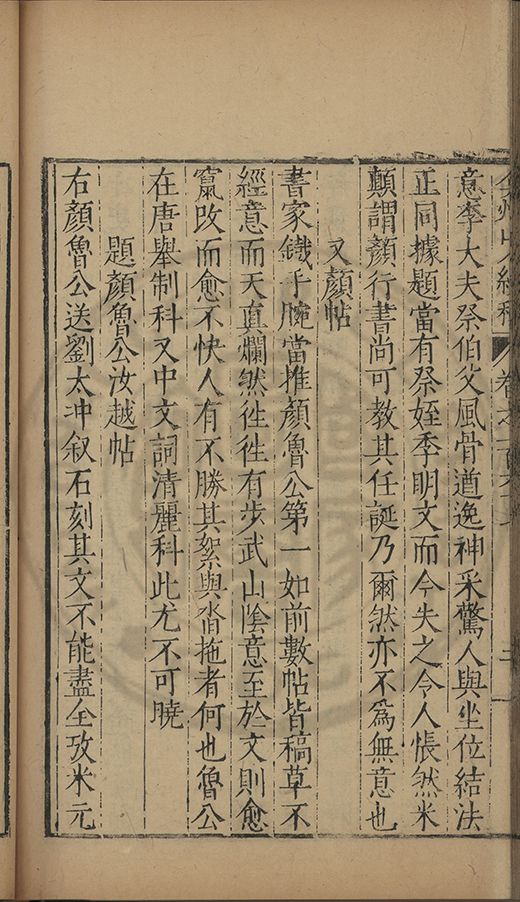 意季大夫祭伯父風骨遒逸神采驚人與坐位結法
正同據題當有祭姪季明文而今失之令人悵然米
顛謂顏行書尚可教其任誕乃爾然亦不為無意也
又顏帖
書家鐵手腕當推顏魯公第一如前數帖皆稿草不
經意而天真爛然徃徃有步武山陰意至於文則愈
竄改而愈不快人有不勝其絮與沓拖者何也魯公
在唐舉制科又中文詞清麗科此尤不可曉
題顏魯公汝越帖
右顏魯公送劉太冲叙石刻其文不能盡全攷米元